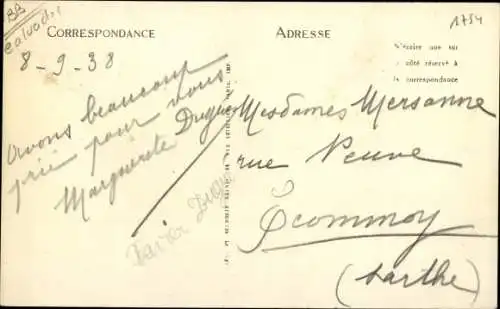 BB
Calvados
CORRESPONDANCE
8-9-38
Avons beaucoup
prié pour vous
Marguerite Dugué
ADRESSE
1754
N'écrire que sur
le côté réservé à
la correspondance
Mesdames Mersanne
rue Neuve
Ecommoy
(Sarthe)